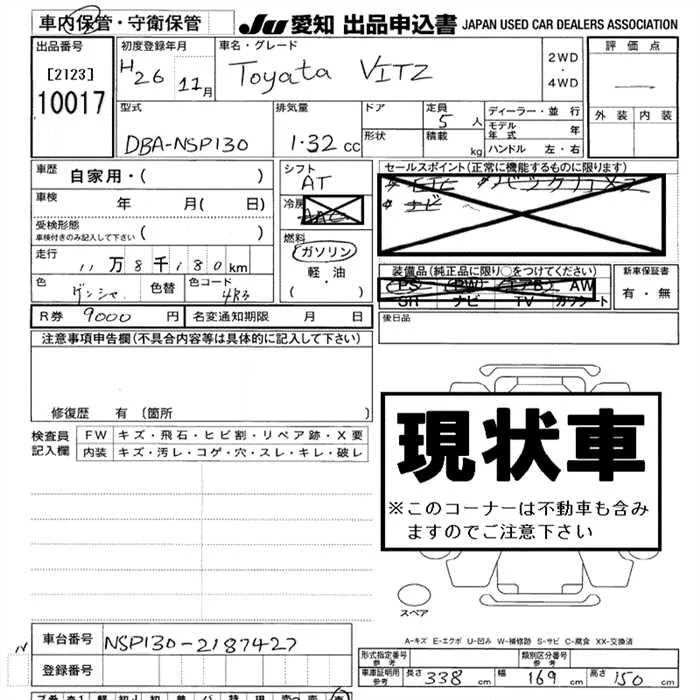 車内保管・守衛保管 JU 愛知 出品申込書 JAPAN USED CAR DEALERS ASSOCIATION
出品番号 初度登録年月 車名・グレード 評価点
[2123] H26 11月 Toyata VITZ 2WD・4WD
10017 外装 内装
型式 排気量 ドア 定員 5人 ディーラー・並行
モデル年式 年
DBA-NSP130 1.32cc 形状 積載 kg ハンドル 左・右
車歴 自家用・( ) シフト AT セールスポイント(正常に機能するものに限ります)
車検 年 月( 日) 冷房 AAC ETC
ナビ
受検形態 車検付きのみ記入して下さい ( ) 燃料
走行 11万8千180km ガソリン 装備品(純正品に限り○をつけてください) 新車保証書
軽・油 PS PW エアB AW 有・無
色 色替 色コード 4R3 ( ) SR ナビ TV カワシート
R券 9000円 名変通知期限 月 日 後日品
注意事項申告欄(不具合内容等は具体的に記入して下さい)
現状車
修復歴 有〔箇所 〕
※このコーナーは不動車も含み
ますのでご注意下さい
検査員 FW キズ・飛石・ヒビ割・リペア跡・X要
記入欄 内装 キズ・汚レ・コゲ・穴・スレ・キレ・破レ
スペア
A-キズ E-エクボ U-凹み W-補修跡 S-サビ C-腐食 XX-交換済
車台番号 NSP130-2187427
形式指定番号 参考 類別区分番号 参考
登録番号 車庫証明用 参考 長さ 338 cm 幅 169 cm 高さ 150 cm